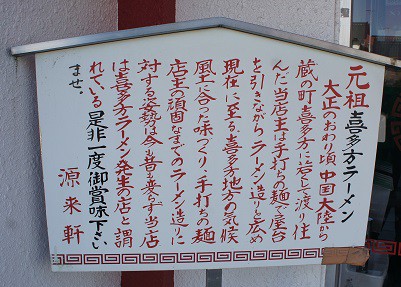 元祖 喜多方ラーメン
大正のおわり頃 中国大陸から
蔵の町喜多方に若くして渡り住
んだ当店主は手打ちの麺で屋台
を引きながらラーメン造りを広め
現在に至る。喜多方地方の気候
風土に合った味つくり、手打ちの麺
店主の頑固なまでのラーメン造りに
対する姿勢は今も昔も変らず当店
は喜多方ラーメン発生の店と謂
れている 是非一度御賞味下さい
ませ。
源来軒